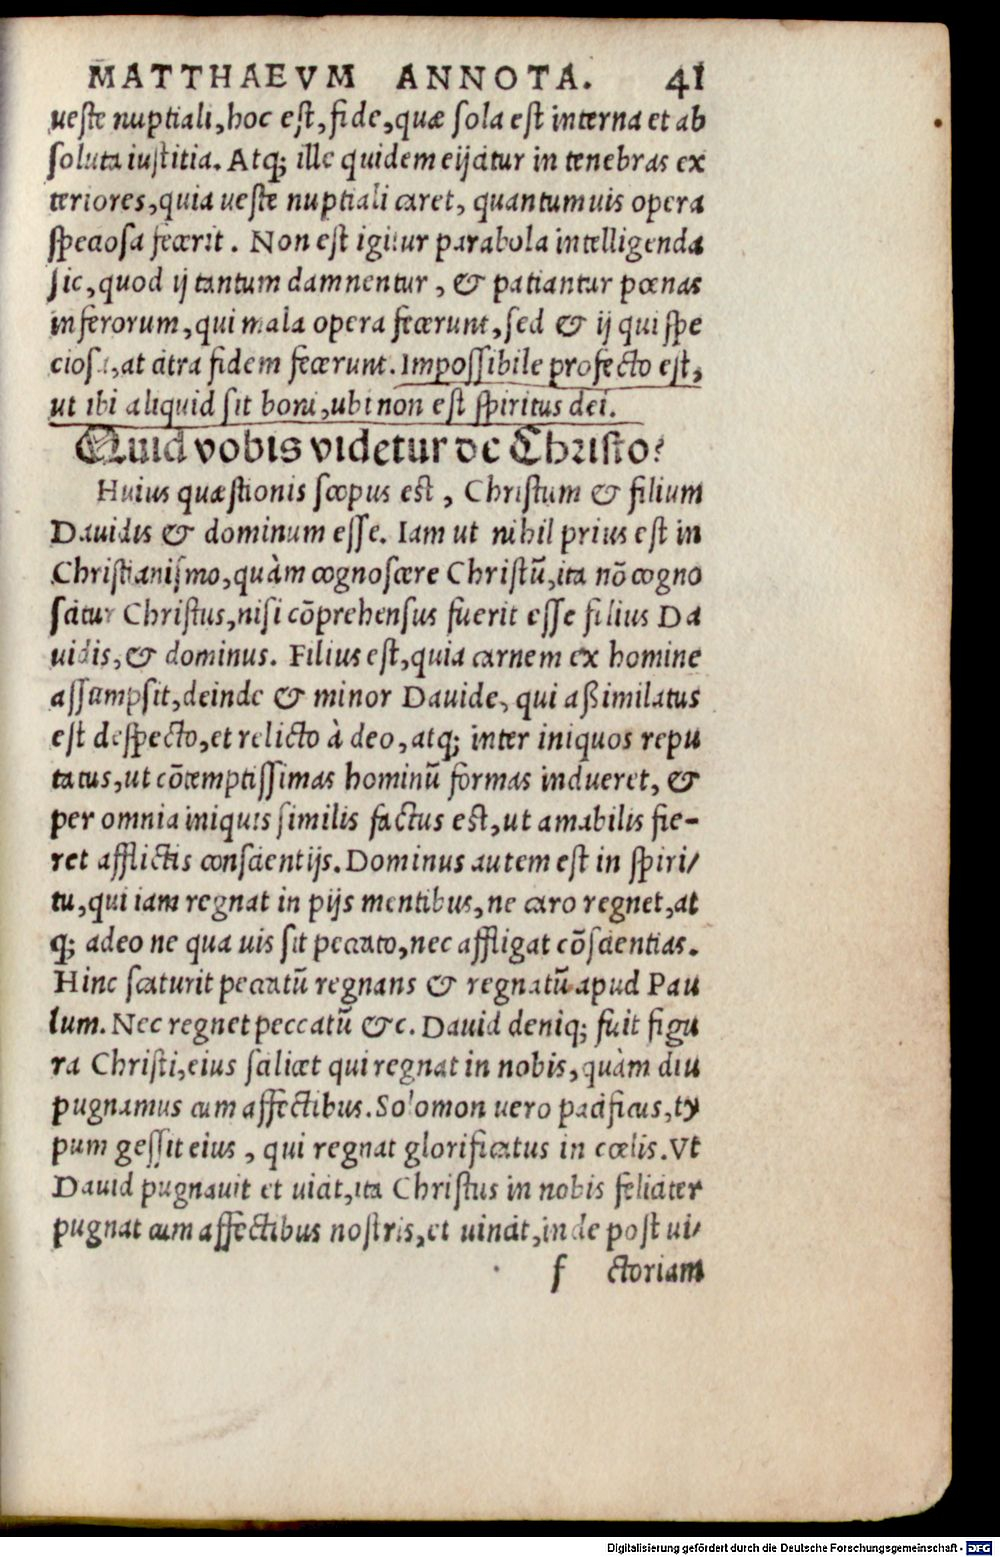 MATTHAEVM ANNOTA. 41
ueste nuptiali, hoc est, fide, quæ sola est interna et ab
soluta iustitia. Atq; ille quidem eijcitur in tenebras ex
teriores, quia ueste nuptiali caret, quantumuis opera
speciosa fecerit. Non est igitur parabola intelligenda
sic, quod ij tantum damnentur, & patiantur pœnas
inferorum, qui mala opera fecerunt, sed & ij qui spe
ciosa, at citra fidem fecerunt. Impossibile profecto est,
ut ibi aliquid sit boni, ubi non est spiritus dei.
Quid vobis videtur de Christo?
Huius quæstionis scopus est, Christum & filium
Dauidis & dominum esse. Iam ut nihil prius est in
Christianismo, quàm cognoscere Christū, ita nō cogno
scitur Christus, nisi cōprehensus fuerit esse filius Da
uidis, & dominus. Filius est, quia carnem ex homine
assumpsit, deinde & minor Dauide, qui aßimilatus
est despecto, et relicto à deo, atq; inter iniquos repu
tatus, ut cōtemptissimas hominū formas indueret, &
per omnia iniquis similis factus est, ut amabilis fie-
ret afflictis conscientijs. Dominus autem est in spiri/
tu, qui iam regnat in pijs mentibus, ne caro regnet, at
q; adeo ne qua uis sit peccato, nec affligat cōscientias.
Hinc scaturit peccatū regnans & regnatū apud Pau
lum. Nec regnet peccatū &c. Dauid deniq; fuit figu
ra Christi, eius scilicet qui regnat in nobis, quàm diu
pugnamus cum affectibus. Solomon uero pacificus, ty
pum gessit eius, qui regnat glorificatus in cœlis. Vt
Dauid pugnauit et uicit, ita Christus in nobis feliciter
pugnat cum affectibus nostris, et uincit, inde post ui/
f ctoriam
Digitalisierung gefördert durch die Deutsche Forschungsgemeinschaft - DFG